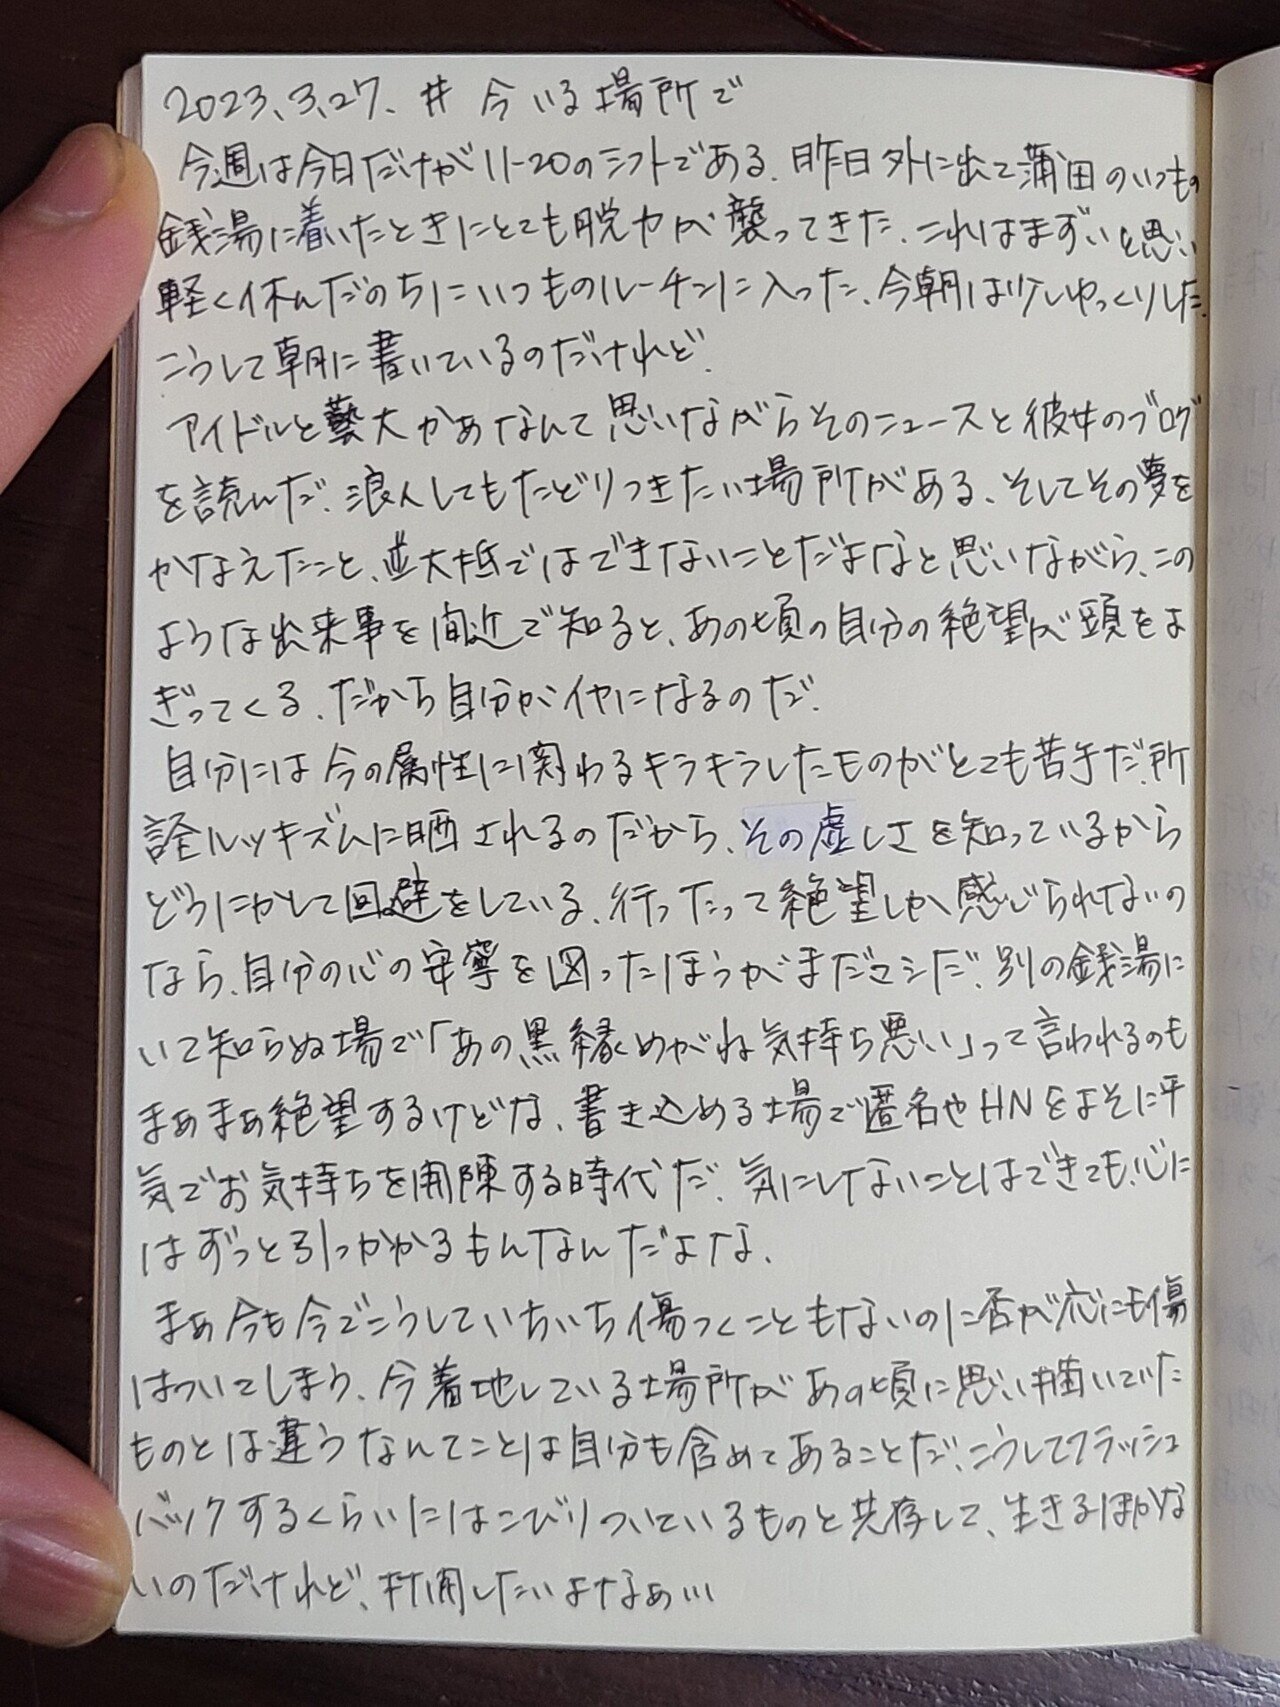 2023.3.27. # 今いる場所で
今週は今日だけが11-20のシフトである。昨日外に出て蒲田のいつもの
銭湯に着いたときにとても脱力が襲ってきた。これはまずいと思い
軽く休んだのちにいつものルーチンに入った。今朝は少しゆっくりした。
こうして朝に書いているのだけれど。
アイドルと藝大かあなんて思いながらそのニュースと彼女のブログ
を読んだ。浪人してもたどりつきたい場所がある、そしてその夢を
かなえたこと、並大抵ではできないことだよなと思いながら、この
ような出来事を間近で知ると、あの頃の自分の絶望が頭をよ
ぎってくる。だから自分がイヤになるのだ。
自分には今の属性に関わるキラキラしたものがとても苦手だ。所
詮ルッキズムに晒されるのだから、その虚しさを知っているから
どうにかして回避をしている。行ったって絶望しか感じられないの
なら、自分の心の安寧を図ったほうがまだマシだ。別の銭湯に
いて知らぬ場で「あの黒縁めがね気持ち悪い」って言われるのも
まぁまぁ絶望するけどな。書き込める場で匿名やHNをよそに平
気でお気持ちを開陳する時代だ。気にしないことはできても、心に
はずっと引っかかるもんなんだよな。
まぁ今も今でこうしていちいち傷つくこともないのに否が応にも傷
はついてしまう。今着地している場所があの頃に思い描いていた
ものとは違うなんてことは自分も含めてあることだ。こうしてフラッシュ
バックするくらいにはこびりついているものと共存して、生きるほかな
いのだけれど、打開したいよなぁ…